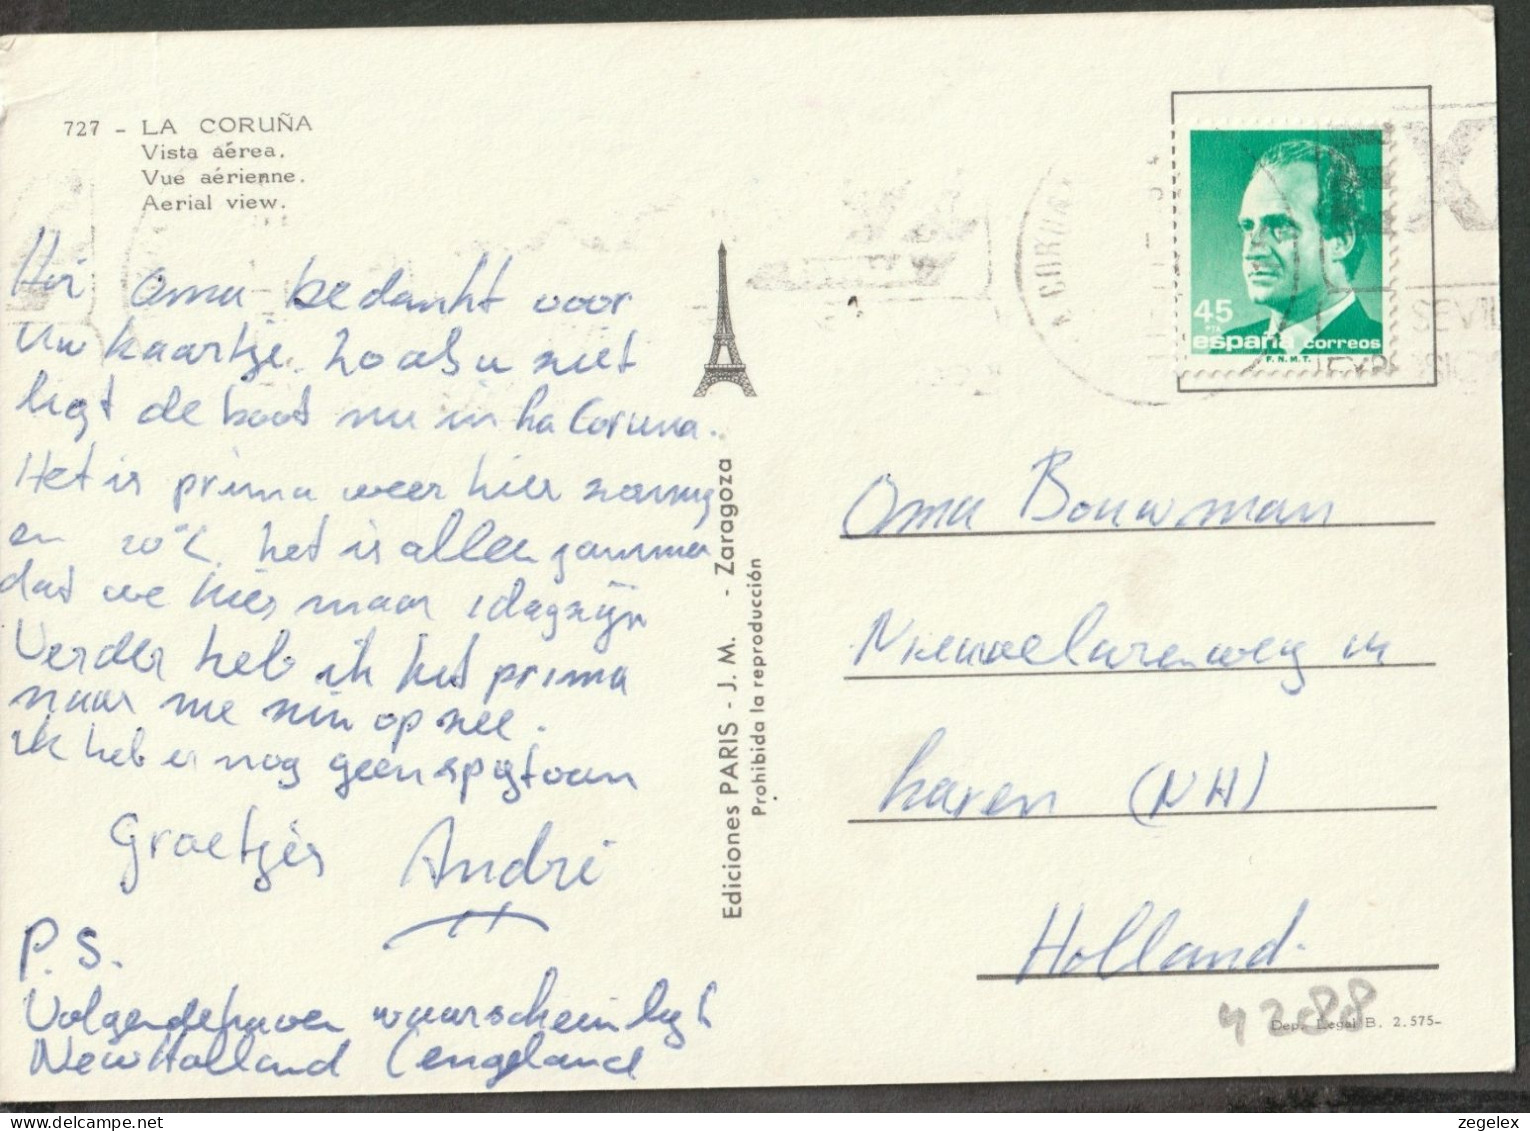 727 - LA CORUÑA
Vista aérea.
Vue aérienne.
Aerial view.
Hoi Oma bedankt voor
Uw kaartje. Zo als u ziet
ligt de boot nu in La Coruna.
Het is prima weer hier zonnig
en 20°C. het is alleen jammer
dat we hier maar 1 dag zijn
Verder heb ik het prima
naar me zin op zee.
ik heb er nog geen spijt van
Groetjes André
P.S.
Volgende haven waarscheinlijk
New Holland (engeland
Ediciones PARIS - J. M. - Zaragoza
Prohibida la reproducción
A CORUÑA
EX
SEVIL
45
PTA
españa correos
F.N.M.T.
Oma Bouwman
Nieuwelarenweg
Laren (NH)
Holland.
42088
Dep. Legal B. 2.575-
zegelex